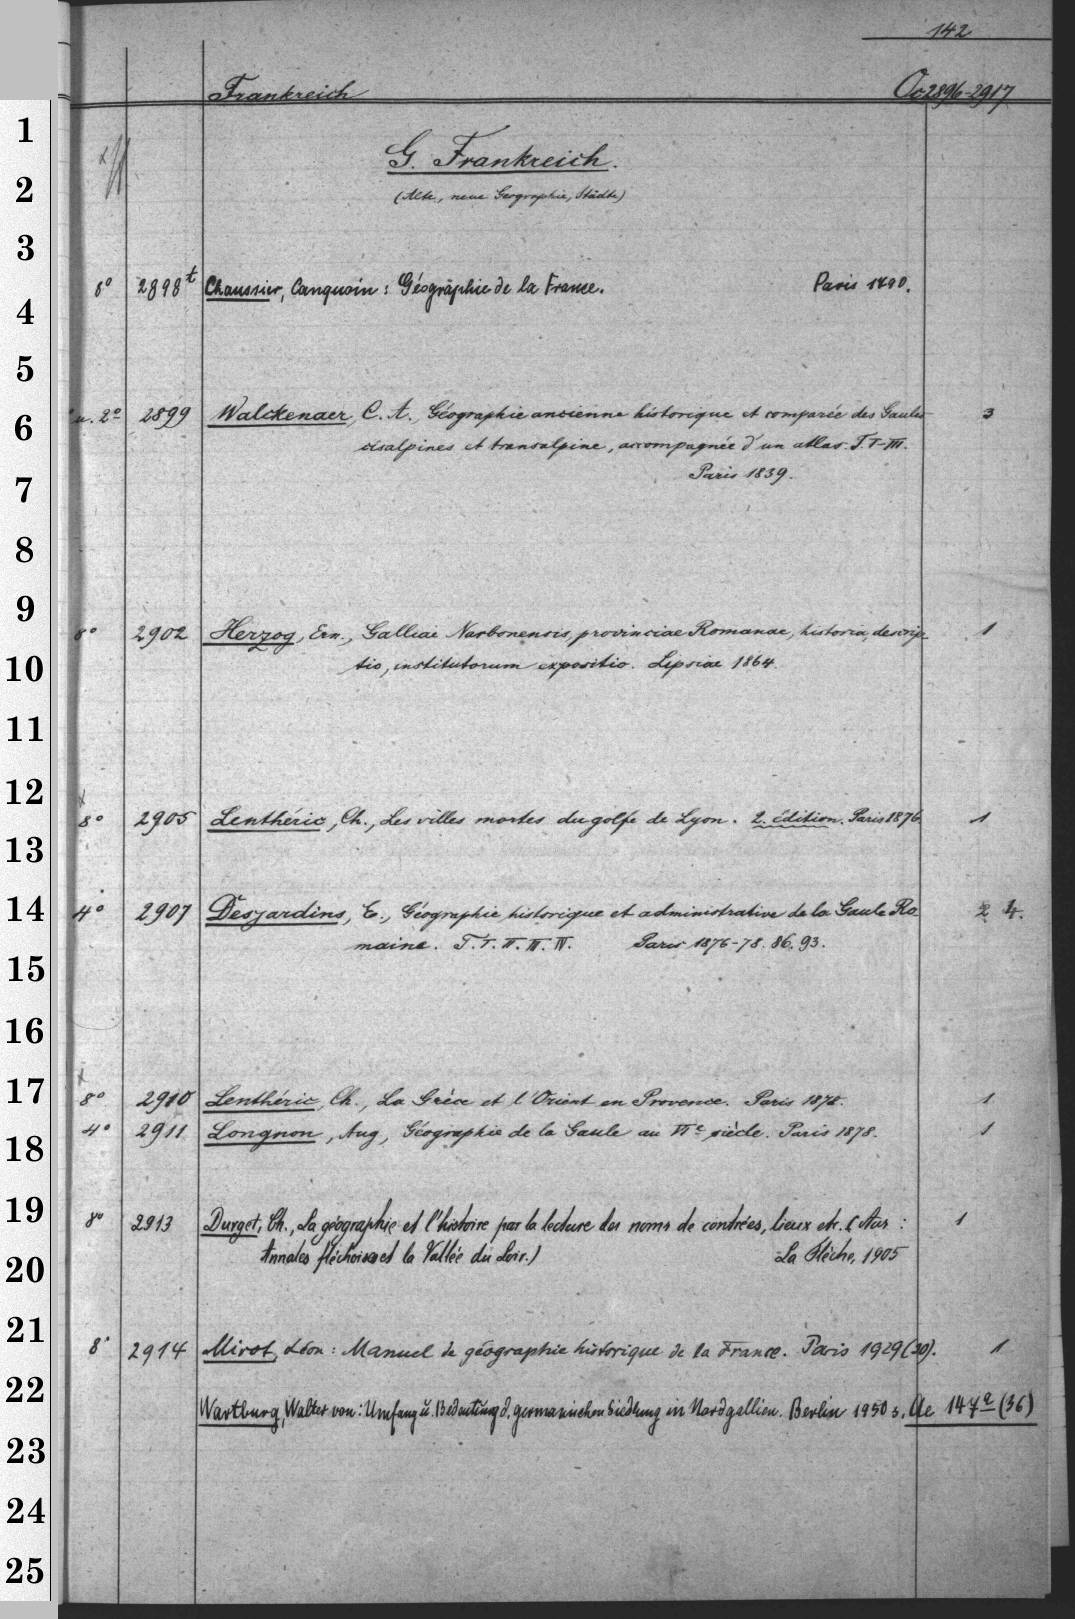 142
Frankreich Oc 2896-2917
G. Frankreich.
(Alte, neue Geographie, Städte)
8° 2898t Chaussier, Canquoin: Géographie de la France. Paris 1790.
u. 2° 2899 Walckenaer, C. A., Géographie ancienne historique et comparée des Gaules 3
cisalpines et transalpine, accompagnée d'un atlas. T. I-III.
Paris 1839.
8° 2902 Herzog, Ern., Galliae Narbonensis, provinciae Romanae, historia, descrip- 1
tio, institutorum expositio. Lipsiae 1864.
8° 2905 Lenthéric, Ch., Les villes mortes du golfe de Lyon. 2. édition. Paris 1876. 1
4° 2907 Desjardins, E., Géographie historique et administrative de la Gaule Ro 2 4.
maine. T. I. II. III. IV. Paris 1876-78. 86. 93.
8° 2910 Lenthéric, Ch., La Grèce et l'Orient en Provence. Paris 1878. 1
4° 2911 Longnon, Aug, Géographie de la Gaule au VIe siècle. Paris 1878. 1
8° 2913 Durget, Ch., La géographie et l'histoire par la lecture des noms de contrées, lieux etc. (Aus: 1
Annales fléchoises et la Vallée du Loir.) La Flèche, 1905
8° 2914 Mirot, Léon: Manuel de géographie historique de la France. Paris 1929(30). 1
Wartburg, Walter von: Umfang u. Bedeutung d. germanischen Siedlung in Nordgallien. Berlin 1950 s. Ae 147a (36)
1
2
3
4
5
6
7
8
9
10
11
12
13
14
15
16
17
18
19
20
21
22
23
24
25